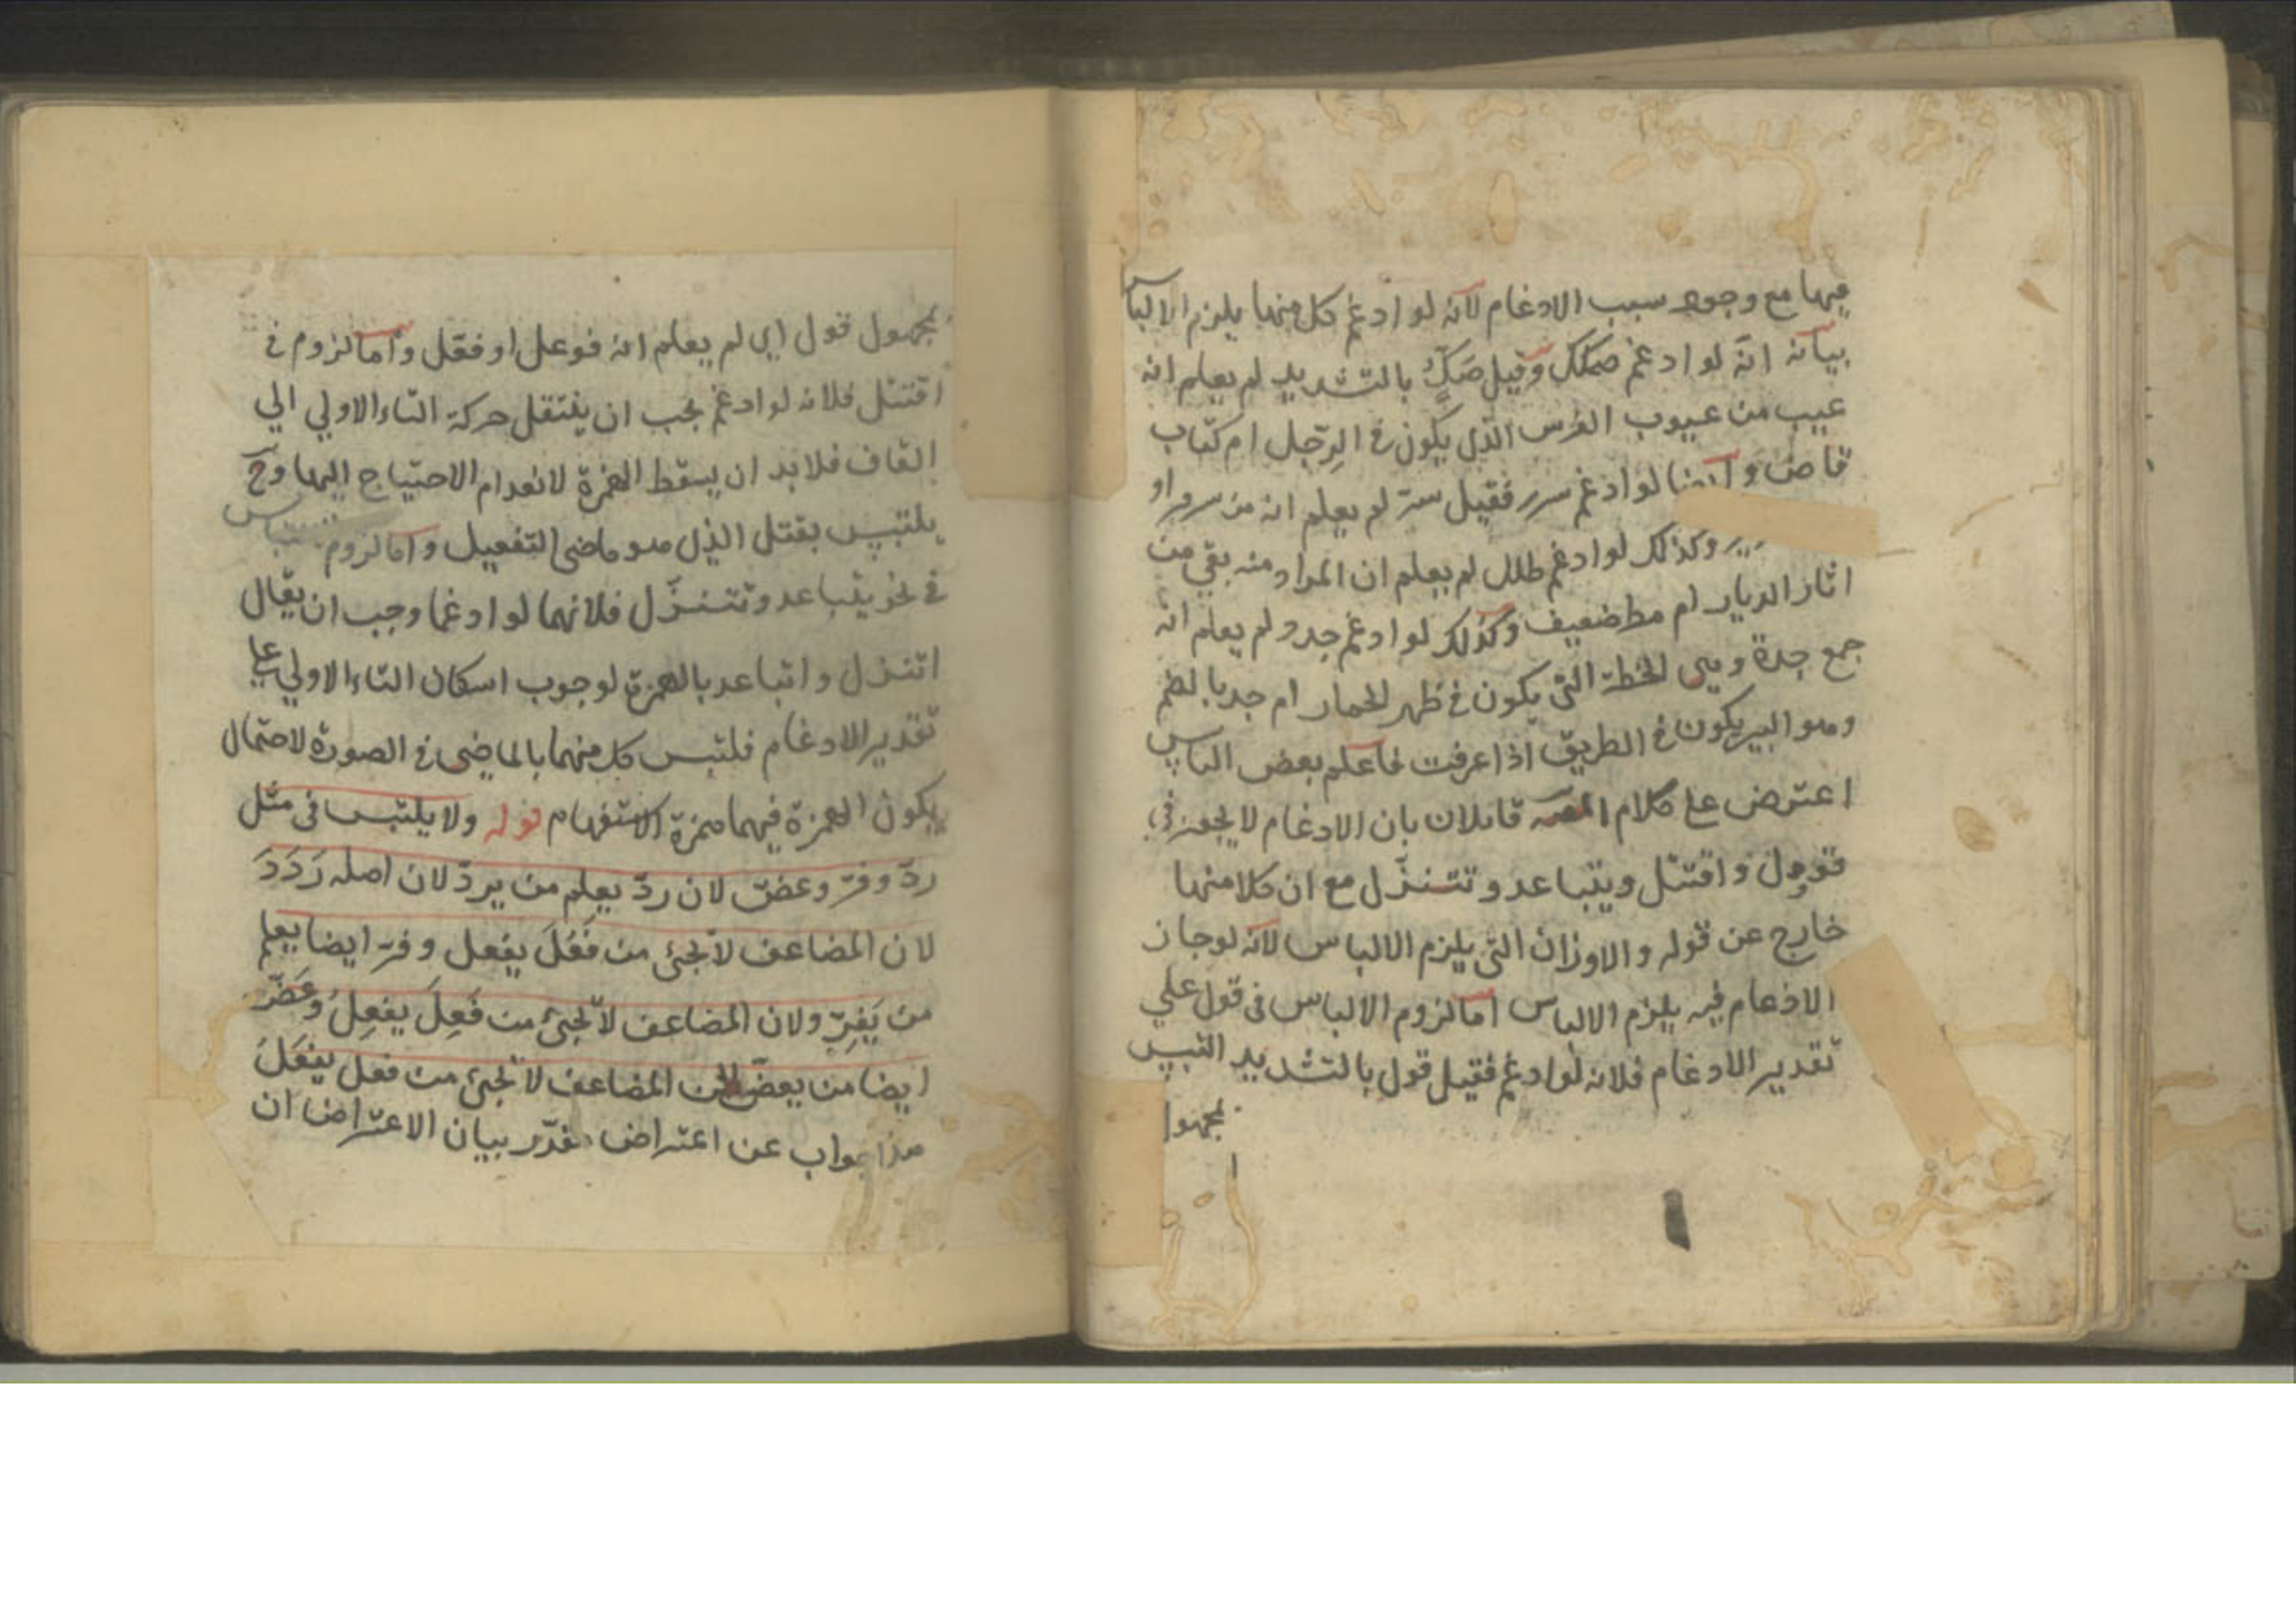 فيها مع وجود سبب الادغام لانه لو ادغم كل منها يلزم الالباس
بيانه انه لو ادغم صكك وقيل صكّ بالتشديد لم يعلم انه
عيب من عيوب الفرس الذي يكون في الرّجل ام كتاب
قاض وايضا لو ادغم سرر فقيل سر لم يعلم انه من سرر او
وكذلك لو ادغم طلل لم يعلم ان المراد منه بقي من
اثار الديار ام مطر ضعيف وكذلك لو ادغم جدد لم يعلم انه
جمع جدة وهي الخطة التي يكون في ظهر الحمار ام جد بالضم
وهو البير يكون في الطريق اذا عرفت فاعلم بعض الناس
اعترض على كلام المصـ قائلان بان الادغام لا يجوز في
قوول واقتتل ويتباعد وتتنزّل مع ان كلا منها
خارج عن قوله والاوزان التي يلزم الالباس لانه لو جاز
الادغام فيه يلزم الالباس اما لزوم الالباس في قول علي
تقدير الادغام فلانه لو ادغم فقيل قول بالتشديد التبس
بمجهول
بمجهول قول اي لم يعلم انه فوعل او فعّل واما لزوم في
اقتتل فلانه لو ادغم يجب ان ينتقل حركة التاء الاولي الي
القاف فلا بد ان يسقط الهمزة لانعدام الاحتياج اليها وح
يلتبس بقتل الذي هو ماضى التفعيل واما لزوم
في نحو يتباعد وتتنزّل فلانهما لو ادغما وجب ان يقال
اتنزل واتباعد بالهمزة لوجوب اسكان التاء الاولي على
تقدير الادغام فلتبس كل منهما بالماضى في الصورة لاحتمال
يكون الهمزة فيهما همزة الاستفهام قوله ولا يلتبس فى مثل
ردّ وفرّ وعضّ لان ردّ يعلم من يردّ لان اصله رَدَدَ
لان المضاعف لا يجئ من فَعُلَ يفعل وفرّ ايضا يعلم
من يَفِرّ ولان المضاعف لا يجئ من فَعِلَ يفعِلُ وعَضّ
ايضا من يعضّ لان المضاعف لا يجئ من فعل يفعَلُ
هذا جواب عن اعتراض مقدّر بيان الاعتراض ان